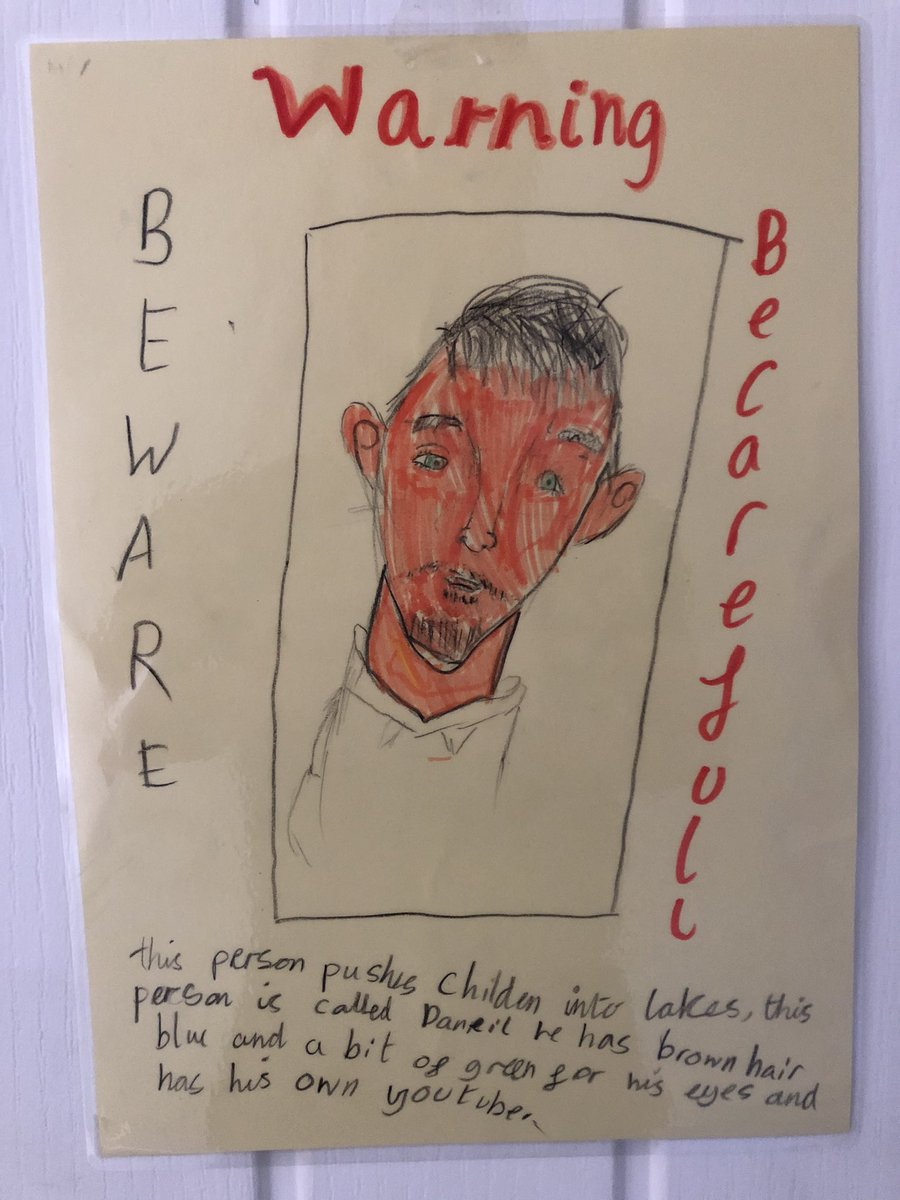 Warning
BEWARE
Becarefull
this person pushes Childen into lakes, this
person is called Daneil he has brown hair
blue and a bit of green for his eyes and
has his own youtuber